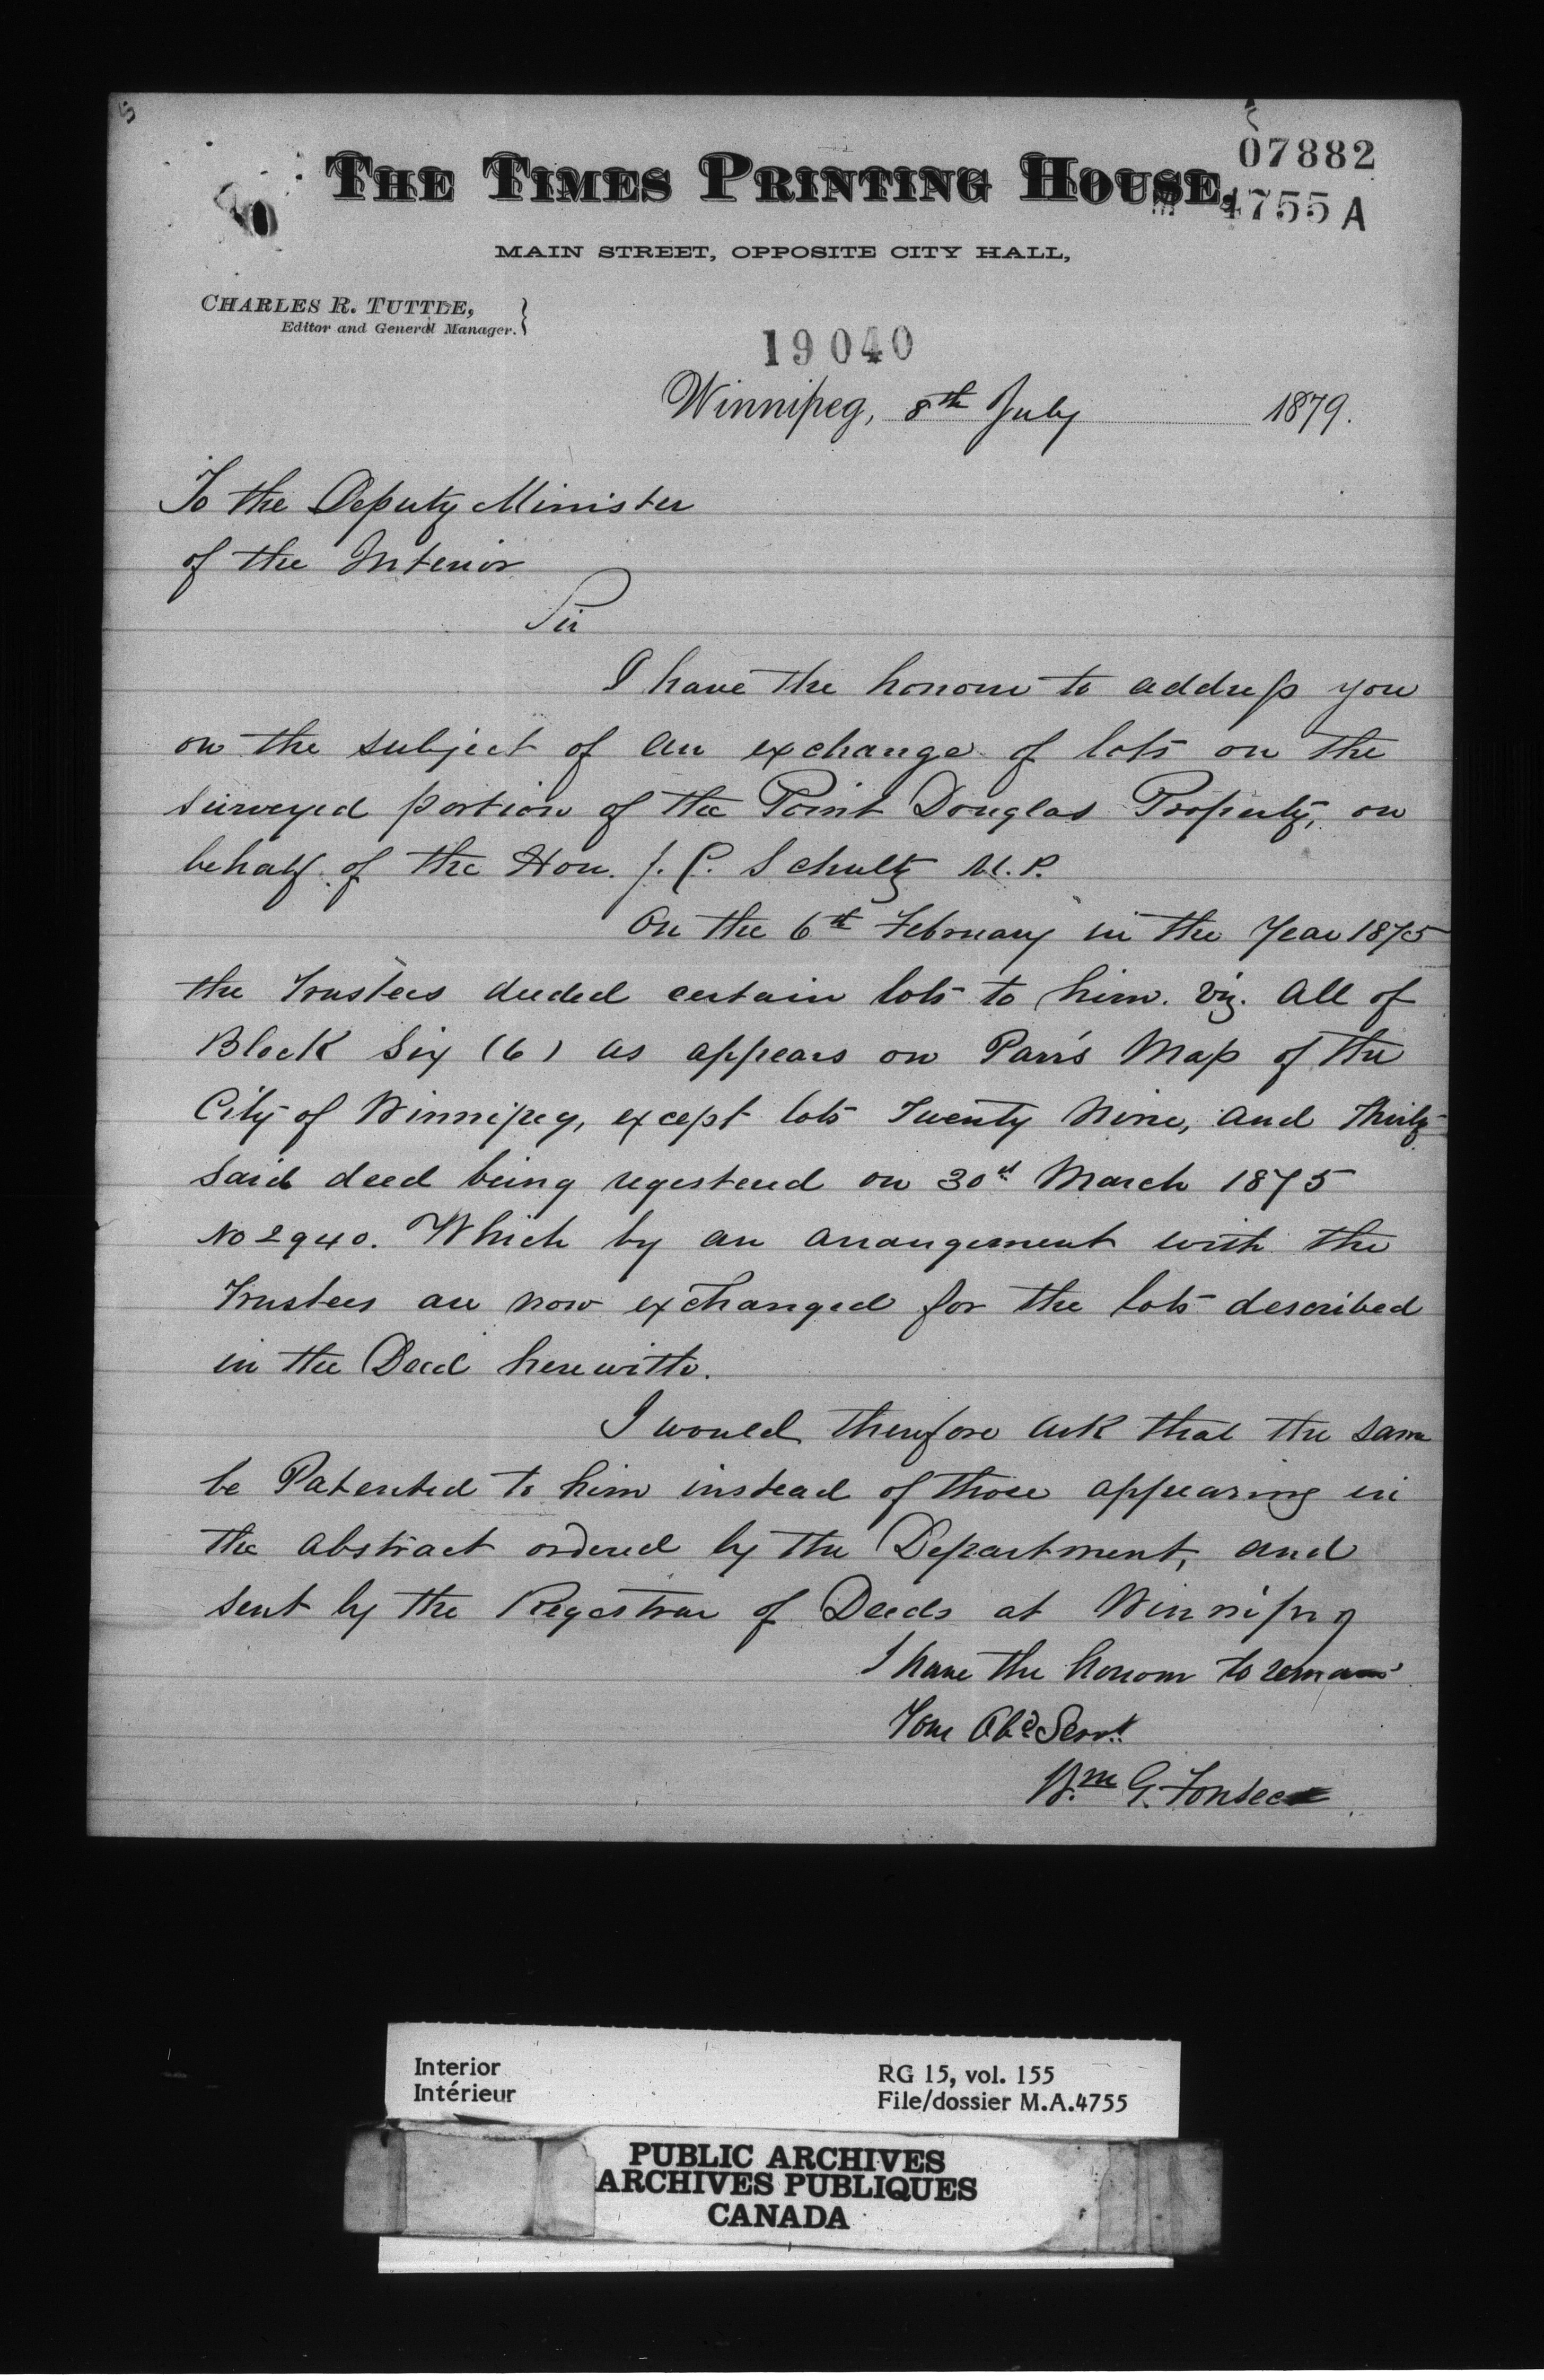 07882
THE TIMES PRINTING HOUSE,
4755 A
MAIN STREET, OPPOSITE CITY HALL,
CHARLES R. TUTTLE,
Editor and General Manager.
19040
Winnipeg, 8th July 1879.
To the Deputy Minister
of the Interior
Sir
I have the honour to address you
on the subject of an exchange of lots on the
surveyed portion of the Point Douglas Property, on
behalf of the Hon. J. C. Schultz M.P.
On the 6th February in the Year 1875
the Trustees deeded certain lots to him. viz. All of
Block Six (6) as appears on Parr's Map of the
City of Winnipeg, except lots Twenty Nine, and Thirty
Said deed being registered on 30th March 1875
No 2940. Which by an arrangement with the
Trustees are now exchanged for the lots described
in the Deed herewith.
I would therefore ask that the same
be Patented to him instead of those appearing in
the abstract ordered by the Department, and
sent by the Registrar of Deeds at Winnipeg
I have the honour to remain
Your Obd Servt
Wm G. Fonseca
Interior
Intérieur
RG 15, vol. 155
File/dossier M.A.4755
PUBLIC ARCHIVES
ARCHIVES PUBLIQUES
CANADA